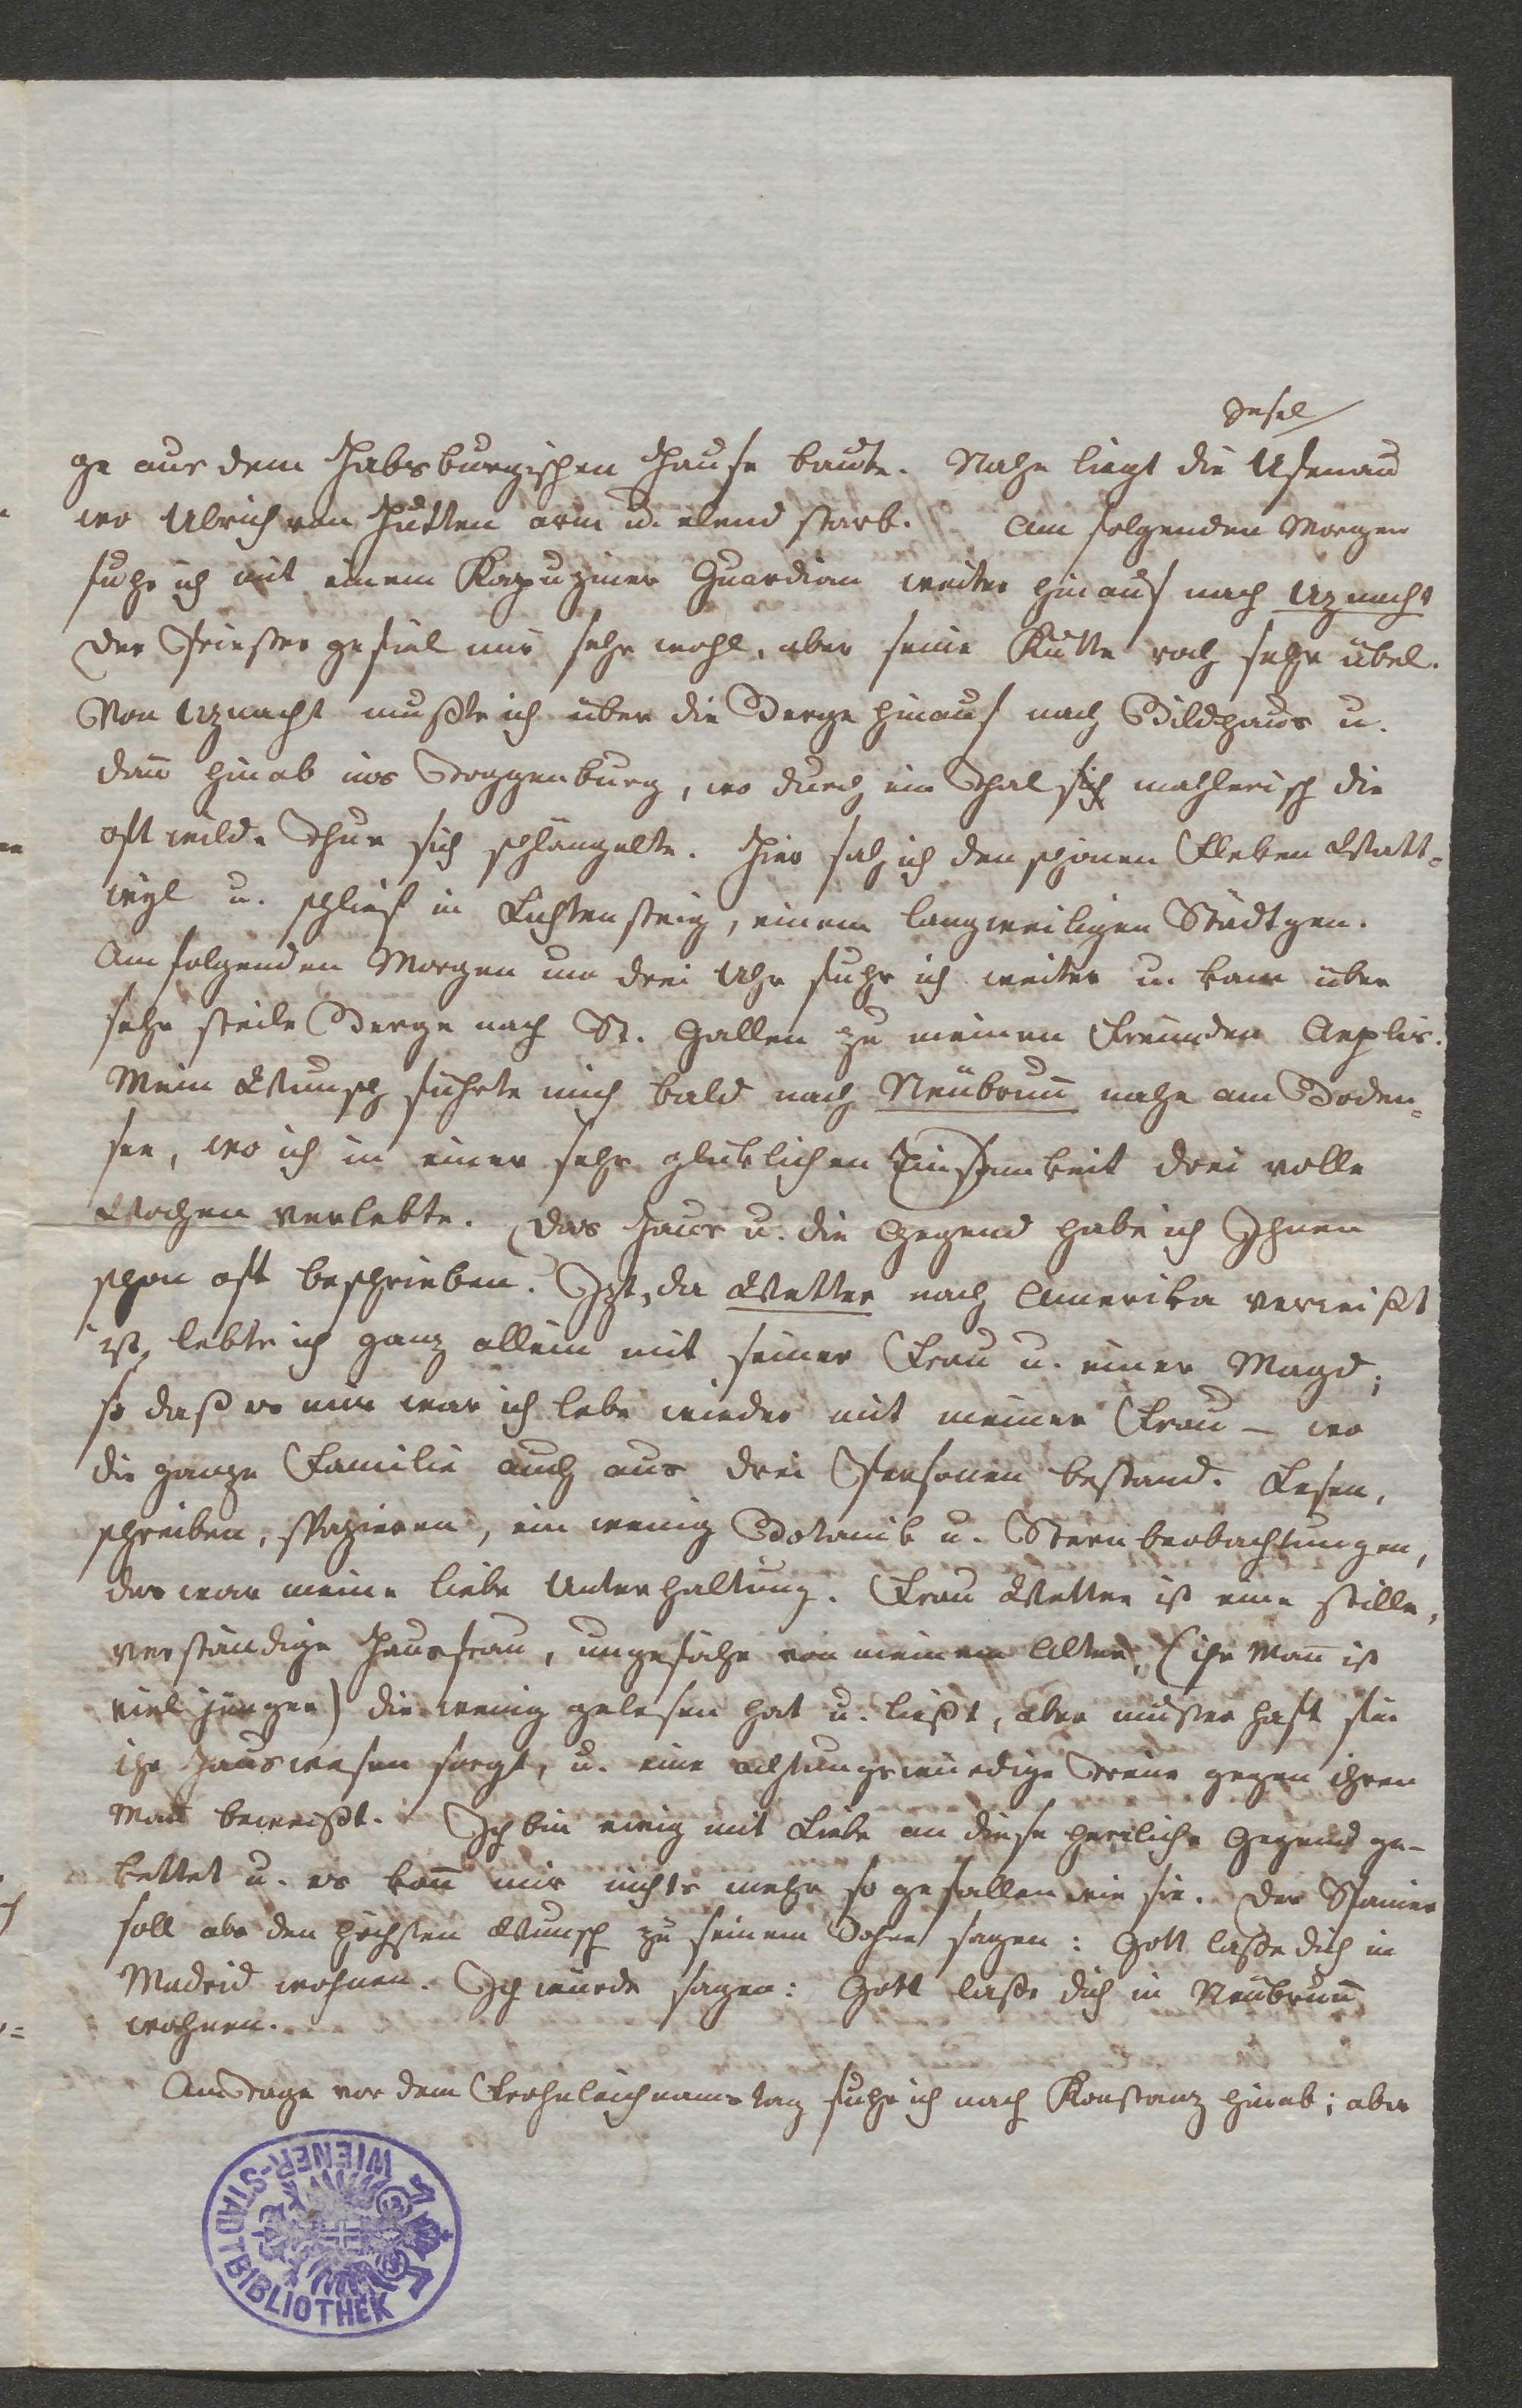 Insel
ge aus dem Habsburgischen Hause baute. Nahe liegt die Ufenau
wo Ulrich von Hutten arm u. elend starb. Am folgenden Morgen
fuhr ich mit einem Kapuziner Guardian weiter hinauf nach Uznacht
Der Priester gefiel mir sehr wohl, aber seine Kutte roch sehr übel.
Von Uznacht mußte ich über die Berge hinauf nach Bildhaus u.
dañ hinab ins Toggenburg, wo durch ein Thal sich mahlerisch die
oft wilde Thur sich schlängelte. Hier sah ich den schönen Fleken Watt-
wyl u. schlief in Lichtensteig, einem langweiligen Städtgen.
Am folgenden Morgen um drei Uhr fuhr ich weiter u. kam über
sehr steile Berge nach St. Gallen zu meinen Freunden Aeplis.
Mein Wunsch führte mich bald nach Neübruñ nahe am Boden-
see, wo ich in einer sehr glüklichen Einsamkeit drei volle
Wochen verlebte. Das Haus u. die Gegend habe ich Ihnen
schon oft beschrieben. Izt, da Vetter nach Amerika verreißt
ist, lebte ich ganz allein mit seiner Frau u. einer Magd;
so daß es mir war ich lebe wieder mit meiner Frau – wo
die ganze Familie auch aus drei Personen bestand. Lesen,
schreiben, spazieren, ein wenig Botanik u. Sternbeobachtungen,
das war meine liebe Unterhaltung. Frau Vetter ist eine stille,
verständige Hausfrau, ungefähr von meinem Alter, (ihr Mañ ist
viel jünger) die wenig gelesen hat u. ließt, aber musterhaft für
ihr Hauswesen sorgt, u. eine achtungswürdige Treue gegen ihren
Mañ beweißt. Ich bin ewig mit Liebe an diese herrliche Gegend ge-
kettet u. es kañ mir nichts mehr so gefallen wie sie. Der Spanier
soll als den höchsten Wunsch zu seinem Sohne sagen: Gott laße dich in
Madrid wohnen. Ich würde sagen: Gott laße dich in Neübruñ
wohnen.
Am Tage vor dem Frohnleichnamstag fuhr ich nach Konstanz hinab; aber
WIENER-STADTBIBLIOTHEK